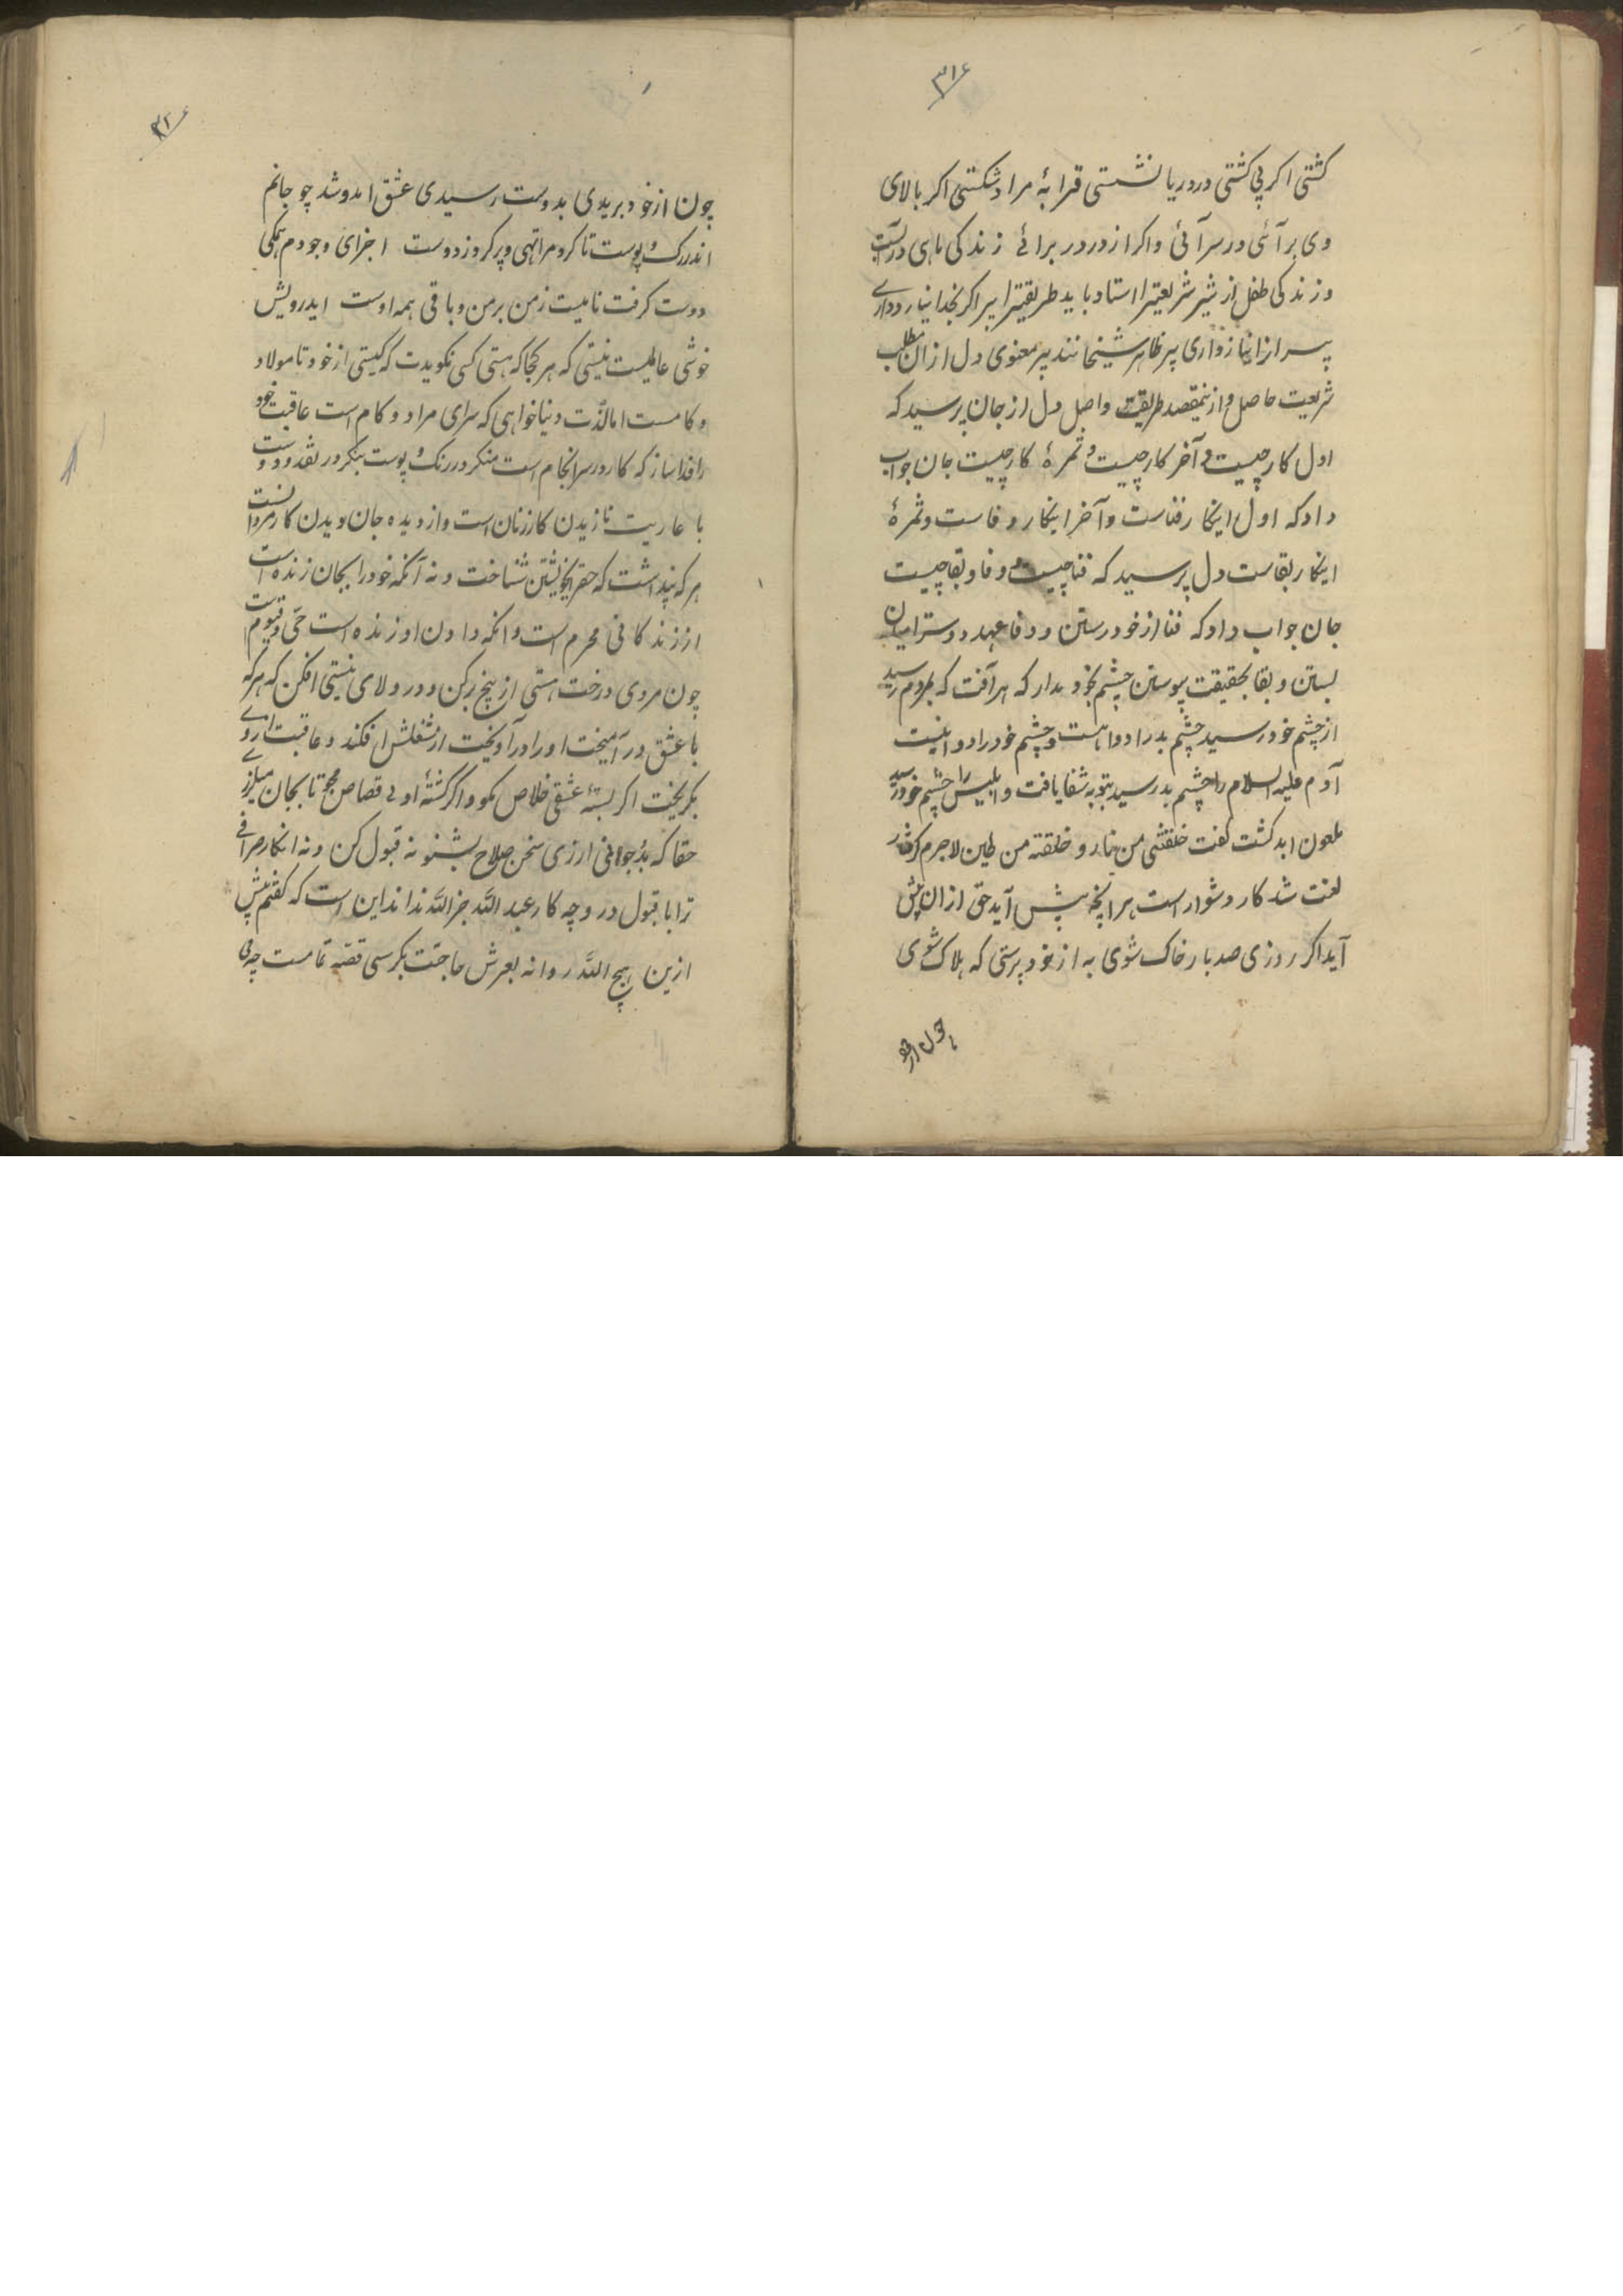 ۳۱۶
کشتی اکر پی کشتی و در دریا نشستی قرابهٔ مراد شکستی اکر بالای
وی برآئی در سرآئی و اکر از در در برائے زندکی ماهی در آبست
و زندکی طفل از شیر شریعترا استاد باید طریقترا پیر اکر بخدا نیاز داری
پسر ازا نیازداری پیر ظاهر شیخانند پیر معنوی دل ازان مطلب
شریعت حاصل و ازینمقصد طریقت واصل دل از جان پرسید که
اول کار چیست و آخر کار چیست و ثمرهٔ کار چیست جان جواب
داد که اول اینکار فناست و آخر اینکار وفاست و ثمرهٔ
اینکار بقاست دل پرسید که فنا چیست و وفا و بقا چیست
جان جواب داد که فنا از خود رستن و وفا عهد دوسترا میان
بستن و بقا بحقیقت پیوستن چشم بخود مدار که هر آفت که بمردم رسید
از چشم خود رسید چشم بد را دوا هست و چشم خود را دوا نیست
آدم علیه السلام را چشم بد رسید بتوبه شفا یافت و ابلیس را چشم خود رسید
ملعون ابد کشت کفت خلقتنی من نار و خلقته من طین لاجرم کرفتار
لعنت شد کار دشوار است هر انچه پیش آید حق ازان پیش
آید اکر روزی صد بار خاک شوی به از خود پرستی که هلاک شوی
چون از خود
۳۲۶
چون از خود بریدی بدوست رسیدی عشق امد و شد چو جانم
اندر رک و پوست تا کرد مرا تهی و پر کرد ز دوست اجزای وجودم همکی
دوست کرفت نامیست ز من بر من و باقی همه اوست ایدرویش
خوشی عالمیست نیستی که هر کجا که هستی کسی نکویدت که کیستی از خود تا مولا دو
و کامست اما لذّت دنیا خواهی که سرای مراد و کام است عاقبت خود
را فدا ساز که کار در سرانجام است منکر در رنک و پوست بنکر در نقد دوست
با عاریت نازیدن کار زنان است و از دیده جان دیدن کار مردانست
هر که پنداشت که حقرا بخویشتن شناخت و نه آنکه خود را بجان زنده است
از زندکانی محرم است و انکه دادن او زنده است حیّ و قیّوم است
چون مردی درخت هستی از بیخ برکن و در ولای نیستی افکن که هر که
با عشق در آمیخت او را در آویخت از شغلش افکند و عاقبت از وے
بکریخت اکر بستهٔ عشقی خلاص مجو و اکر کشتهٔ اوئے قصاص مجو تا بجان میلرزے
حقا که بدو جوانی ارزی سخن صلاح بشنو نه قبول کن و نه انکار صرافے
ترا با قبول درد چه کار عبد اللّه جز اللّه نداند این است که کفتم پیش
ازین هیچ اللّه روا نه بعرش حاجت بکرسی قصّه تمامست چه